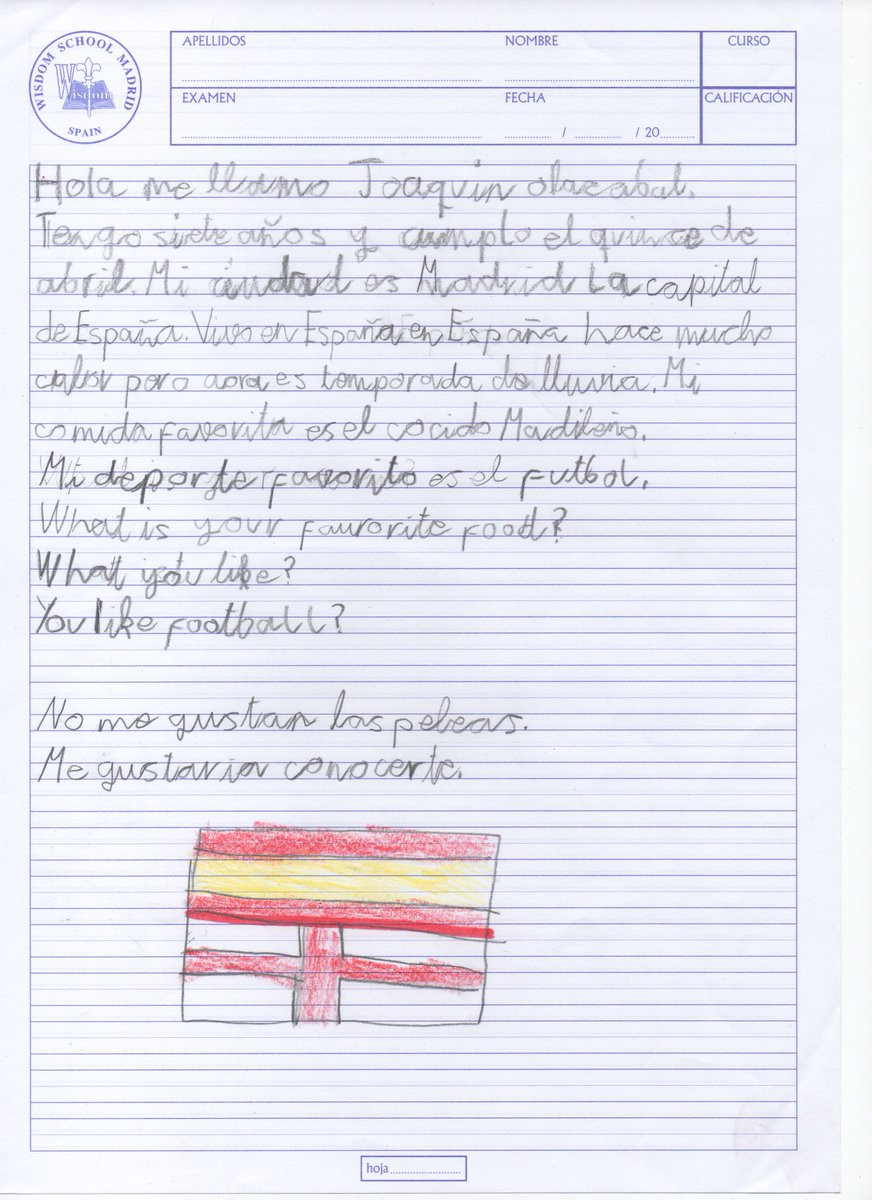 WISDOM SCHOOL MADRID
Wisdom
SPAIN
APELLIDOS NOMBRE CURSO
EXAMEN FECHA CALIFICACIÓN
/ / 20
Hola me llamo Joaquin olazabal.
Tengo siete años y cumplo el quince de
abril. Mi ciudad es Madrid La capital
de España. Vivo en España en España hace mucho
calor pero aora es temporada de lluvia. Mi
comida favorita es el cocido Madileño.
Mi deporte favorito es el futbol.
What is your faurorite food?
What you like?
You like football?
No me gustan las peleas.
Me gustaria conocerte.
hoja